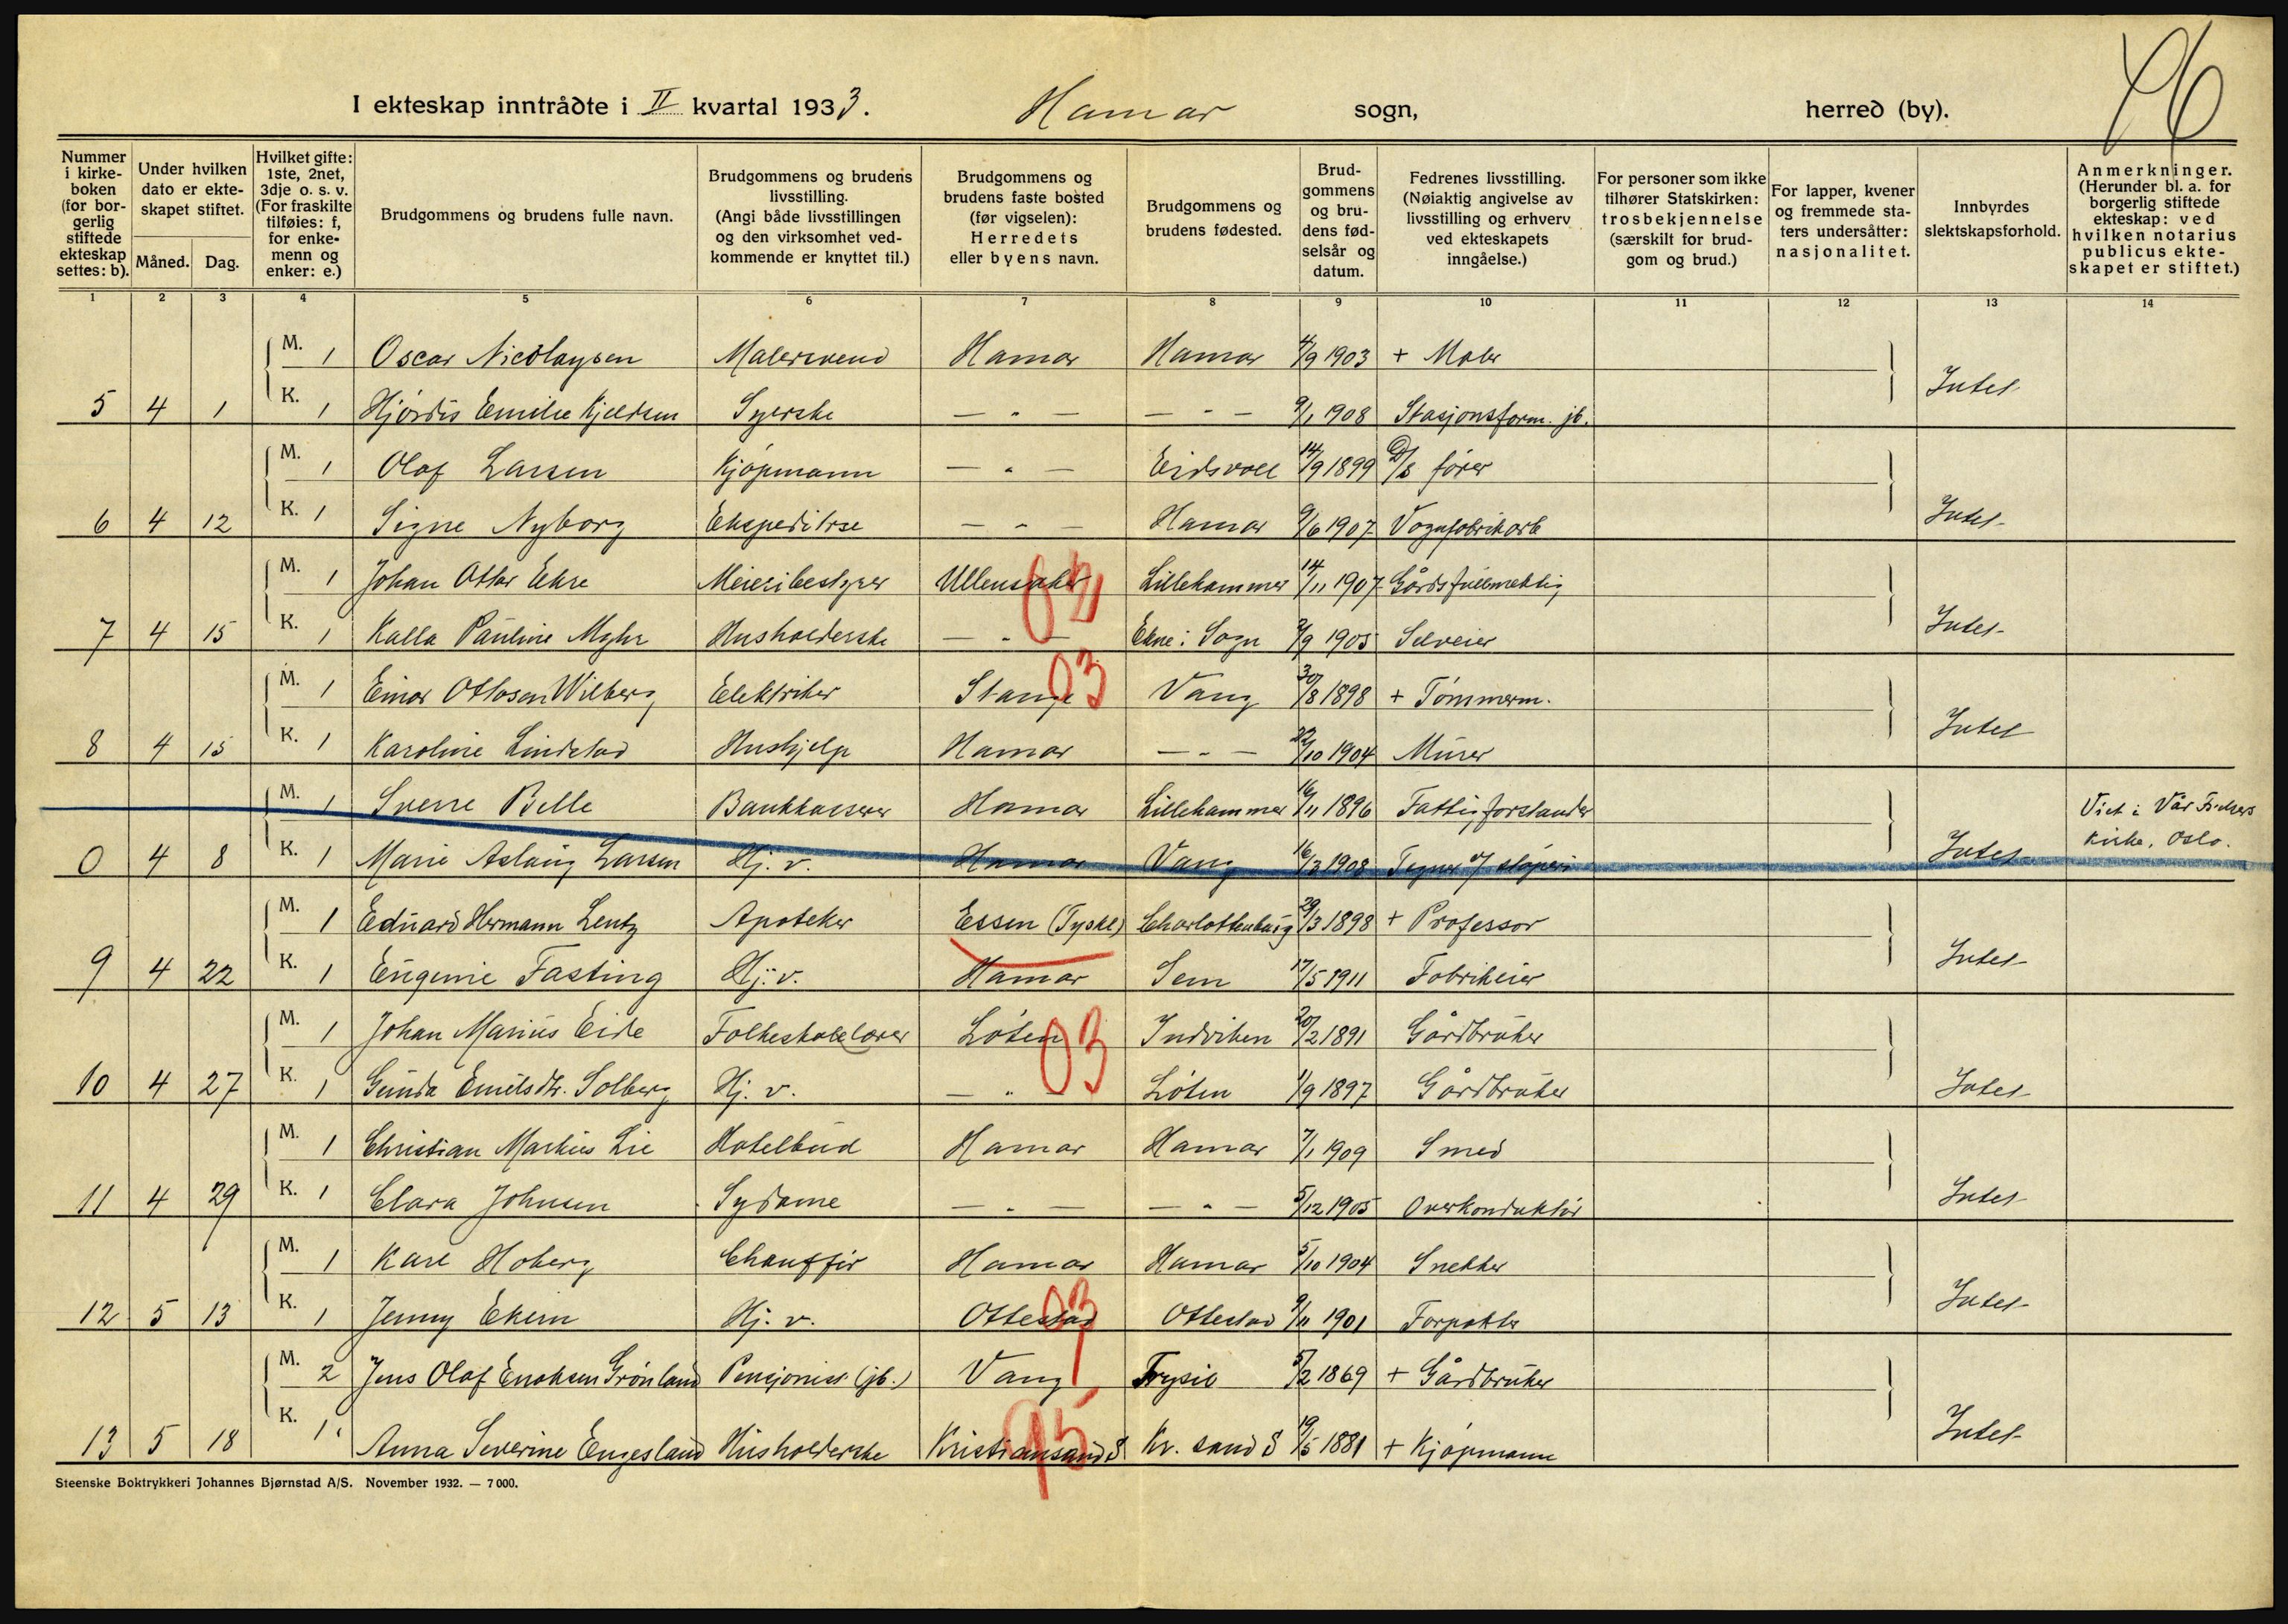 I ekteskap inntrådte i II kvartal 1933. Hamar sogn, herred (by).
Nummer i kirke-boken (for bor-gerlig stiftede ekteskap settes: b).
Under hvilken dato er ekte-skapet stiftet.
Måned. Dag.
Hvilket gifte: 1ste, 2net, 3dje o. s. v. (For fraskilte tilføies: f, for enke-menn og enker: e.)
Brudgommens og brudens fulle navn.
Brudgommens og brudens livsstilling. (Angi både livsstillingen og den virksomhet ved-kommende er knyttet til.)
Brudgommens og brudens faste bosted (før vigselen): Herredets eller byens navn.
Brudgommens og brudens fødested.
Brud-gommens og bru-dens fød-selsår og datum.
Fedrenes livsstilling. (Nøiaktig angivelse av livsstilling og erhverv ved ekteskapets inngåelse.)
For personer som ikke tilhører Statskirken: trosbekjennelse (særskilt for brud-gom og brud.)
For lapper, kvener og fremmede sta-ters undersåtter: nasjonalitet.
Innbyrdes slektskapsforhold.
Anmerkninger. (Herunder bl. a. for borgerlig stiftede ekteskap: ved hvilken notarius publicus ekte-skapet er stiftet.)
1 2 3 4 5 6 7 8 9 10 11 12 13 14
M. 1 Oscar Nicolaysen Malersvend Hamar Hamar 4/9 1903 + Maler
5 4 1 K. 1 Hjørdis Emilie Kjeldsen Syerske — " — — " — 9/1 1908 Stasjonsform. jb. Intet
M. 1 Olaf Larsen Kjøpmann — " — Eidsvoll 14/9 1899 D/S fører
6 4 12 K. 1 Signe Nyborg Ekspeditrse — " — Hamar 9/6 1907 Vognfabrikarb Intet
M. 1 Johan Ottar Ekre Meieribestyrer Ullensaker Lillehammer 14/11 1907 Gårdsfullmektig
7 4 15 K. 1 Kalla Pauline Myhr Husholderske — " — Sogn 2/9 1905 Selveier Intet
03
M. 1 Einar Ottosen Wilberg Elektriker Stange Vang 30/8 1898 + Tømmerm.
03
8 4 15 K. 1 Karoline Lindstad Hushjelp Hamar — " — 22/10 1904 Murer Intet
M. 1 Sverre Belle Bankkasserer Hamar Lillehammer 16/11 1896 Fattigforstander Viet i Vår Frelsers
0 4 8 K. 1 Marie Aslaug Larsen Hj. v. Hamar Vang 16/3 1908 Intet kirke, Oslo.
M. 1 Eduard Hermann Lentz Apoteker Essen (Tyskl) Charlottenburg 29/3 1898 + Professor
9 4 22 K. 1 Eugenie Fasting Hj. v. Hamar Sem 17/5 1911 Fabrikeier Intet
M. 1 Johan Marius Eide Folkeskolelærer Løten Indviken 20/2 1891 Gårdbruker
03
10 4 27 K. 1 Gunda Emilsdtr. Solberg Hj. v. — " — Løten 1/9 1897 Gårdbruker Intet
M. 1 Christian Markus Lie Hotelbud Hamar Hamar 7/1 1909 Smed
11 4 29 K. 1 Clara Johnsen Sydame — " — — " — 5/12 1905 Overkonduktør Intet
M. 1 Karl Hoberg Chauffør Hamar Hamar 5/10 1904 Snekker
12 5 13 K. 1 Jenny Ekern Hj. v. Ottestad Ottestad 9/11 1901 Forpakter Intet
03
M. 2 Jens Olaf Enoksen Grønland Pensjonist (jb.) Vang Trysil 5/2 1869 + Gårdbruker
13 5 18 K. 1 Anna Severine Engesland Husholderske Kristiansand S Kr. sand S 19/5 1881 + Kjøpmann Intet
95
Steenske Boktrykkeri Johannes Bjørnstad A/S. November 1932. — 7 000.